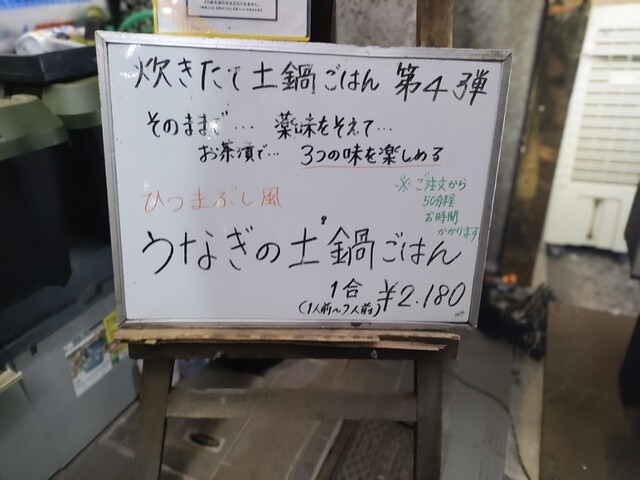 炊きたて土鍋ごはん 第4弾
そのままで… 薬味をそえて…
お茶漬で… 3つの味を楽しめる
※ご注文から
50分程
お時間
かかります
ひつまぶし風
うなぎの土鍋ごはん
1合 ¥2.180
(1人前〜2人前)